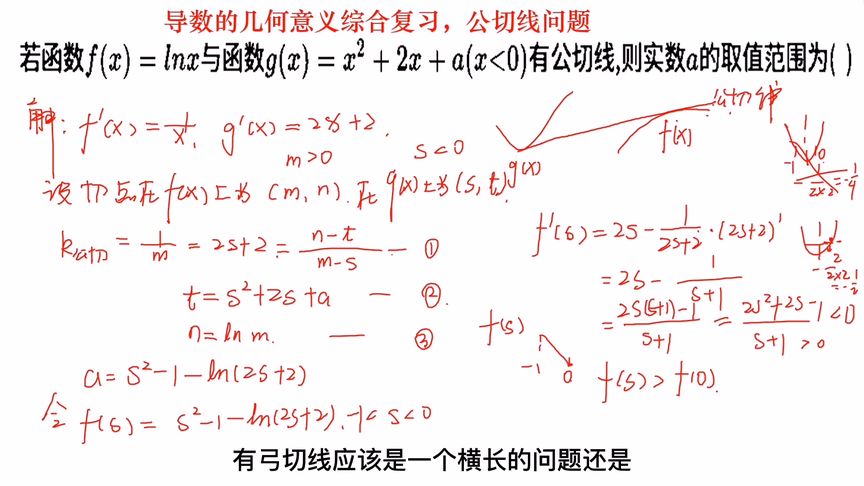 导数的几何意义综合复习，公切线问题
若函数f(x) = lnx与函数g(x) = x² + 2x + a(x<0)有公切线,则实数a的取值范围为( )
解: f'(x) = 1/x, g'(x) = 2x+2.
m>0 s<0
设切点在f(x)上为 (m, n). 在g(x)上为 (s, t)
k公切 = 1/m = 2s+2 = (n-t)/(m-s) — ①
t = s²+2s+a — ②.
n = ln m. — ③
a = s²-1-ln(2s+2)
令 f(s) = s²-1-ln(2s+2). -1<s<0
g(x)
f(x)
公切线
f'(s) = 2s - 1/(2s+2) · (2s+2)'
= 2s - 1/(s+1)
= (2s(s+1)-1)/(s+1) = (2s²+2s-1)/(s+1) <0
>0
f(s)
-1 0
f(s) > f(0).
有弓切线应该是一个横长的问题还是